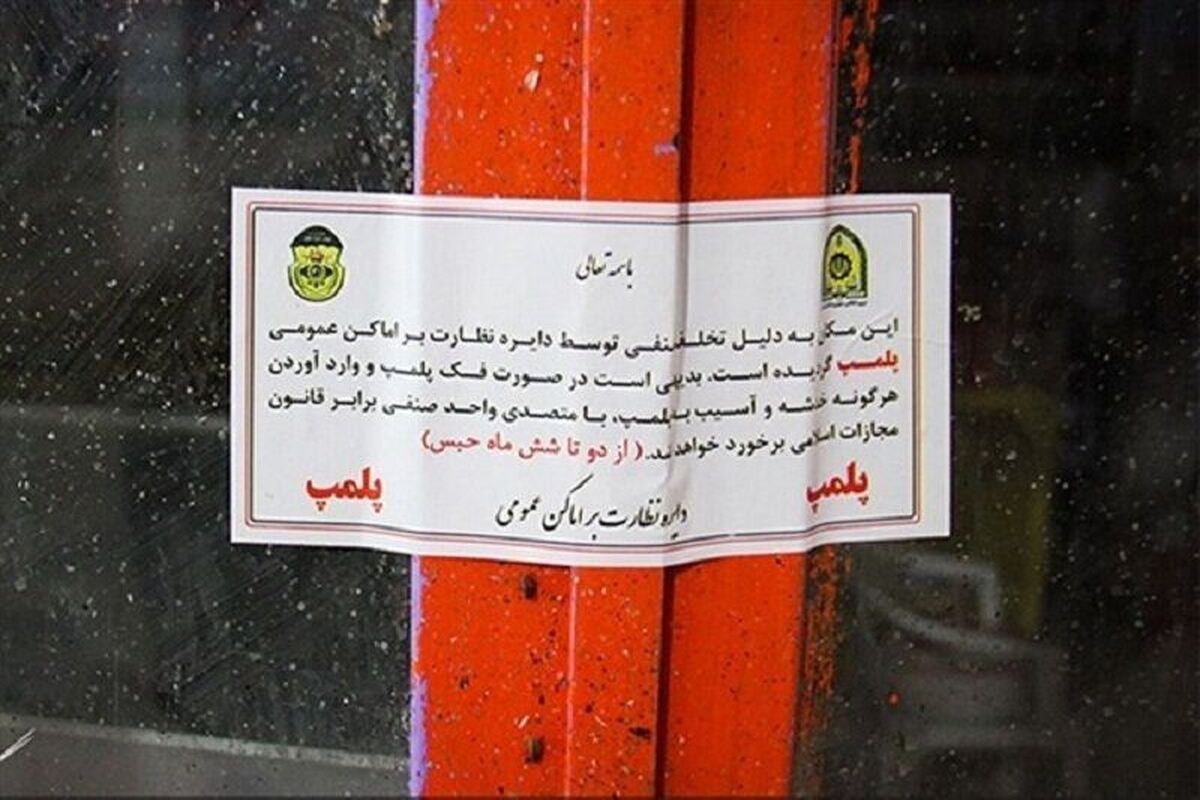 باسمه تعالی
این مکان به دلیل تخلف صنفی توسط دایره نظارت بر اماکن عمومی
پلمپ گردیده است. بدیهی است در صورت فک پلمپ و وارد آوردن
هرگونه خدشه و آسیب به پلمپ، با متصدی واحد صنفی برابر قانون
مجازات اسلامی برخورد خواهد شد. ( از دو تا شش ماه حبس)
پلمپ
پلمپ
دایره نظارت بر اماکن عمومی